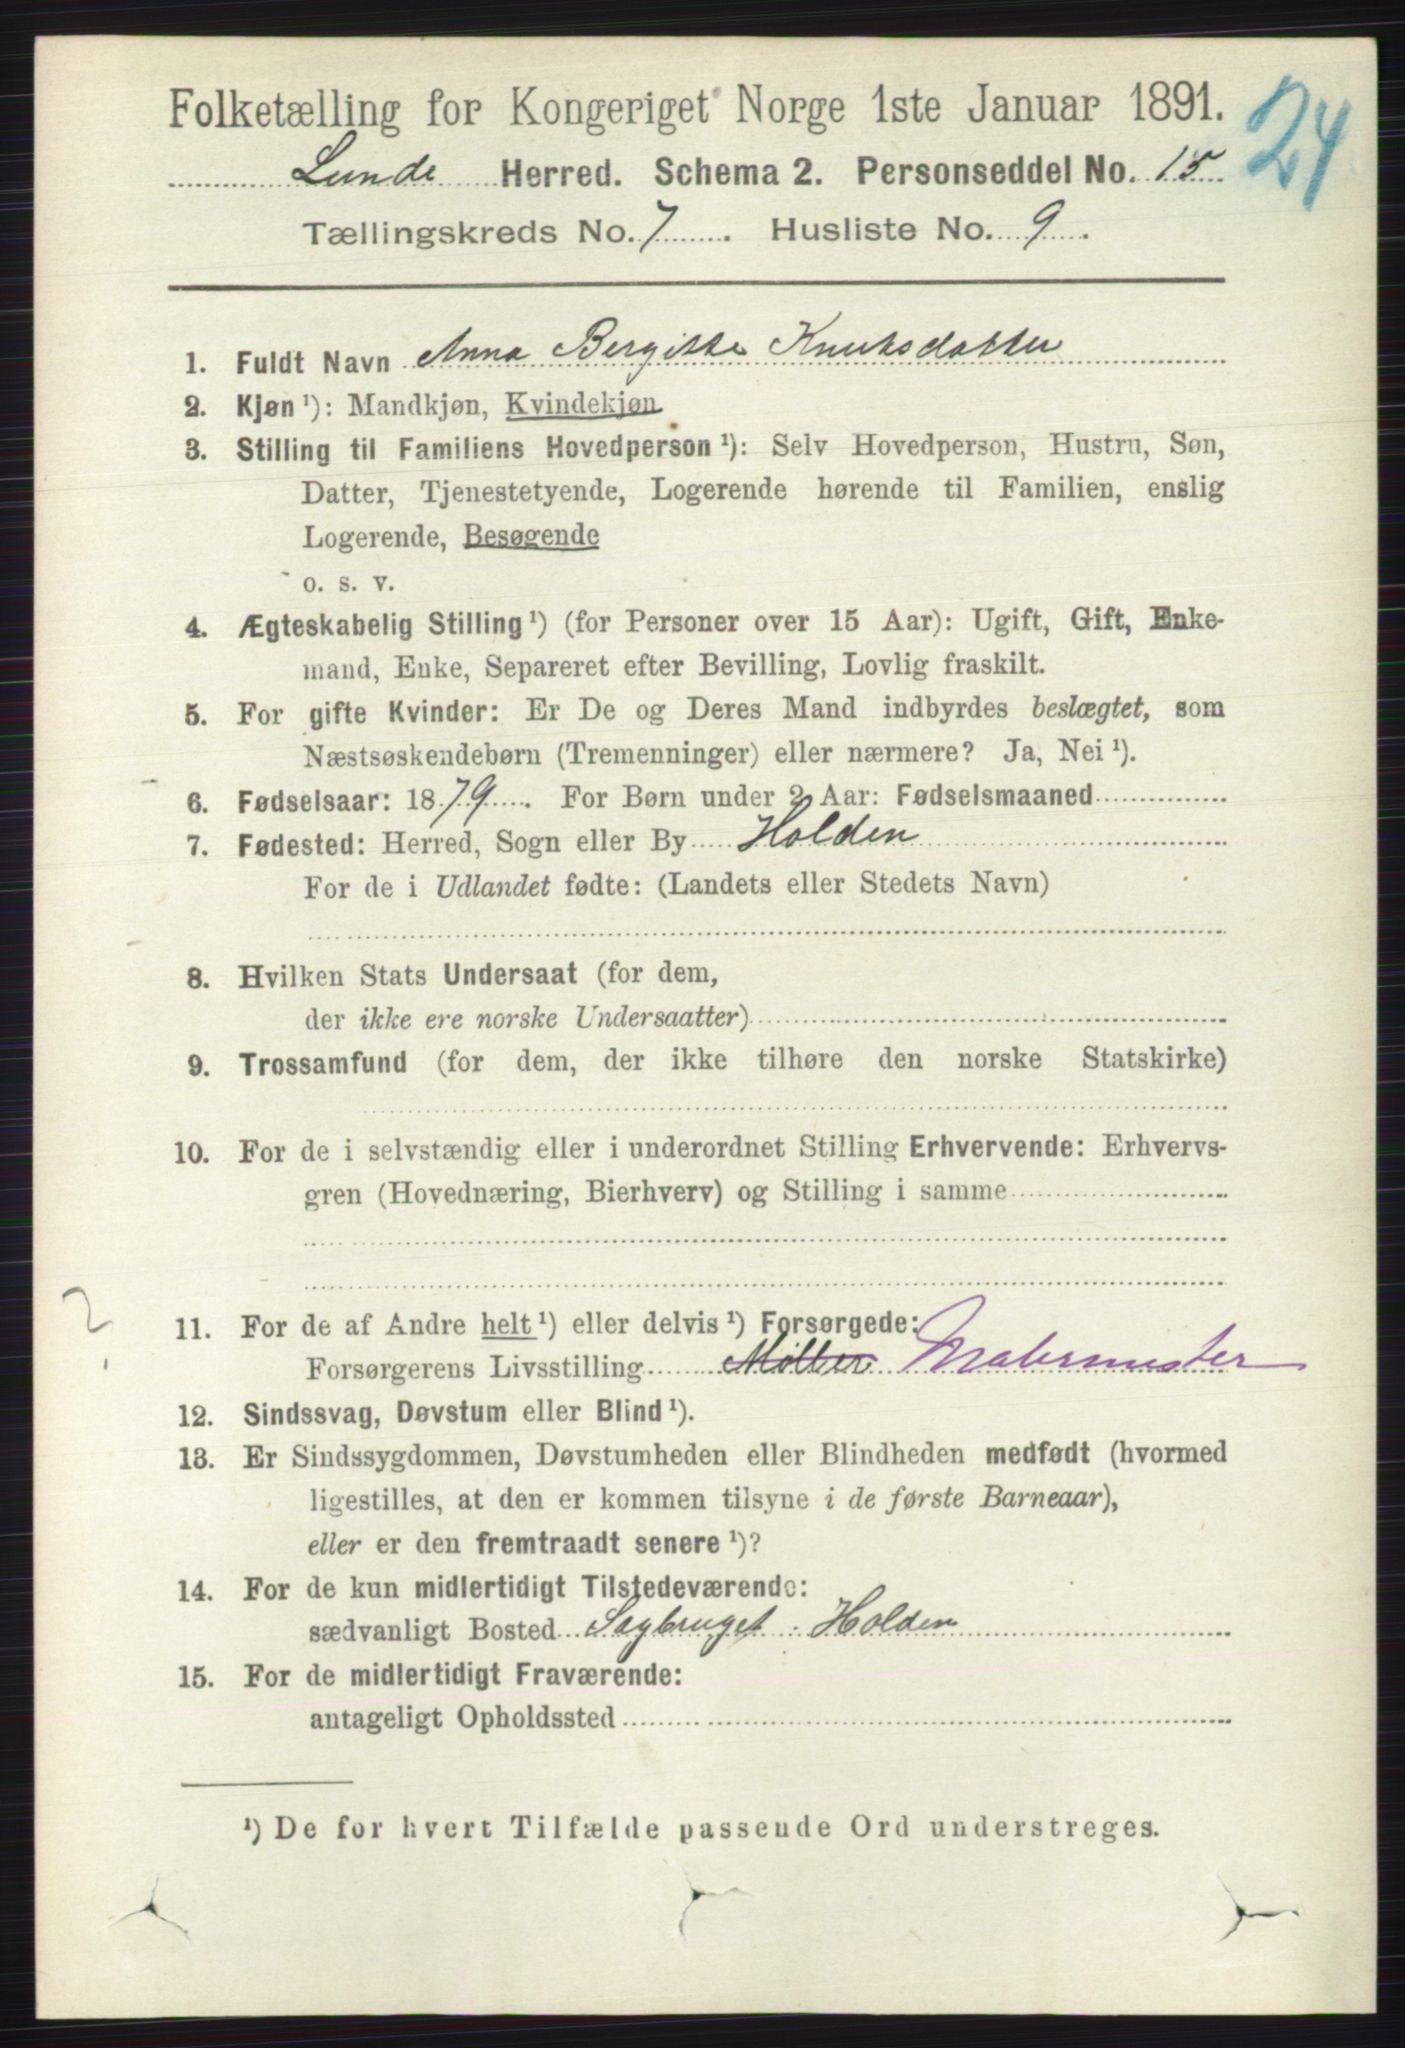 Folketælling for Kongeriget Norge 1ste Januar 1891.
24
Lunde Herred. Schema 2. Personseddel No. 15
Tællingskreds No. 7. Husliste No. 9.
1. Fuldt Navn Anna Bergitte Knutsdatter
2. Kjøn ¹): Mandkjøn, Kvindekjøn
3. Stilling til Familiens Hovedperson ¹): Selv Hovedperson, Hustru, Søn,
Datter, Tjenestetyende, Logerende hørende til Familien, enslig
Logerende, Besøgende
o. s. v.
4. Ægteskabelig Stilling ¹) (for Personer over 15 Aar): Ugift, Gift, Enke-
mand, Enke, Separeret efter Bevilling, Lovlig fraskilt.
5. For gifte Kvinder: Er De og Deres Mand indbyrdes beslægtet, som
Næstsøskendebørn (Tremenninger) eller nærmere? Ja, Nei ¹).
6. Fødselsaar: 1879. For Børn under 2 Aar: Fødselsmaaned
7. Fødested: Herred, Sogn eller By Holden
For de i Udlandet fødte: (Landets eller Stedets Navn)
8. Hvilken Stats Undersaat (for dem,
der ikke ere norske Undersaatter)
9. Trossamfund (for dem, der ikke tilhøre den norske Statskirke)
10. For de i selvstændig eller i underordnet Stilling Erhvervende: Erhvervs-
gren (Hovednæring, Bierhverv) og Stilling i samme
2
11. For de af Andre helt ¹) eller delvis ¹) Forsørgede:
Forsørgerens Livsstilling Møller
12. Sindssvag, Døvstum eller Blind ¹).
13. Er Sindssygdommen, Døvstumheden eller Blindheden medfødt (hvormed
ligestilles, at den er kommen tilsyne i de første Barneaar),
eller er den fremtraadt senere ¹)?
14. For de kun midlertidigt Tilstedeværende:
sædvanligt Bosted Sagbruget. Holden
15. For de midlertidigt Fraværende:
antageligt Opholdssted
¹) De for hvert Tilfælde passende Ord understreges.